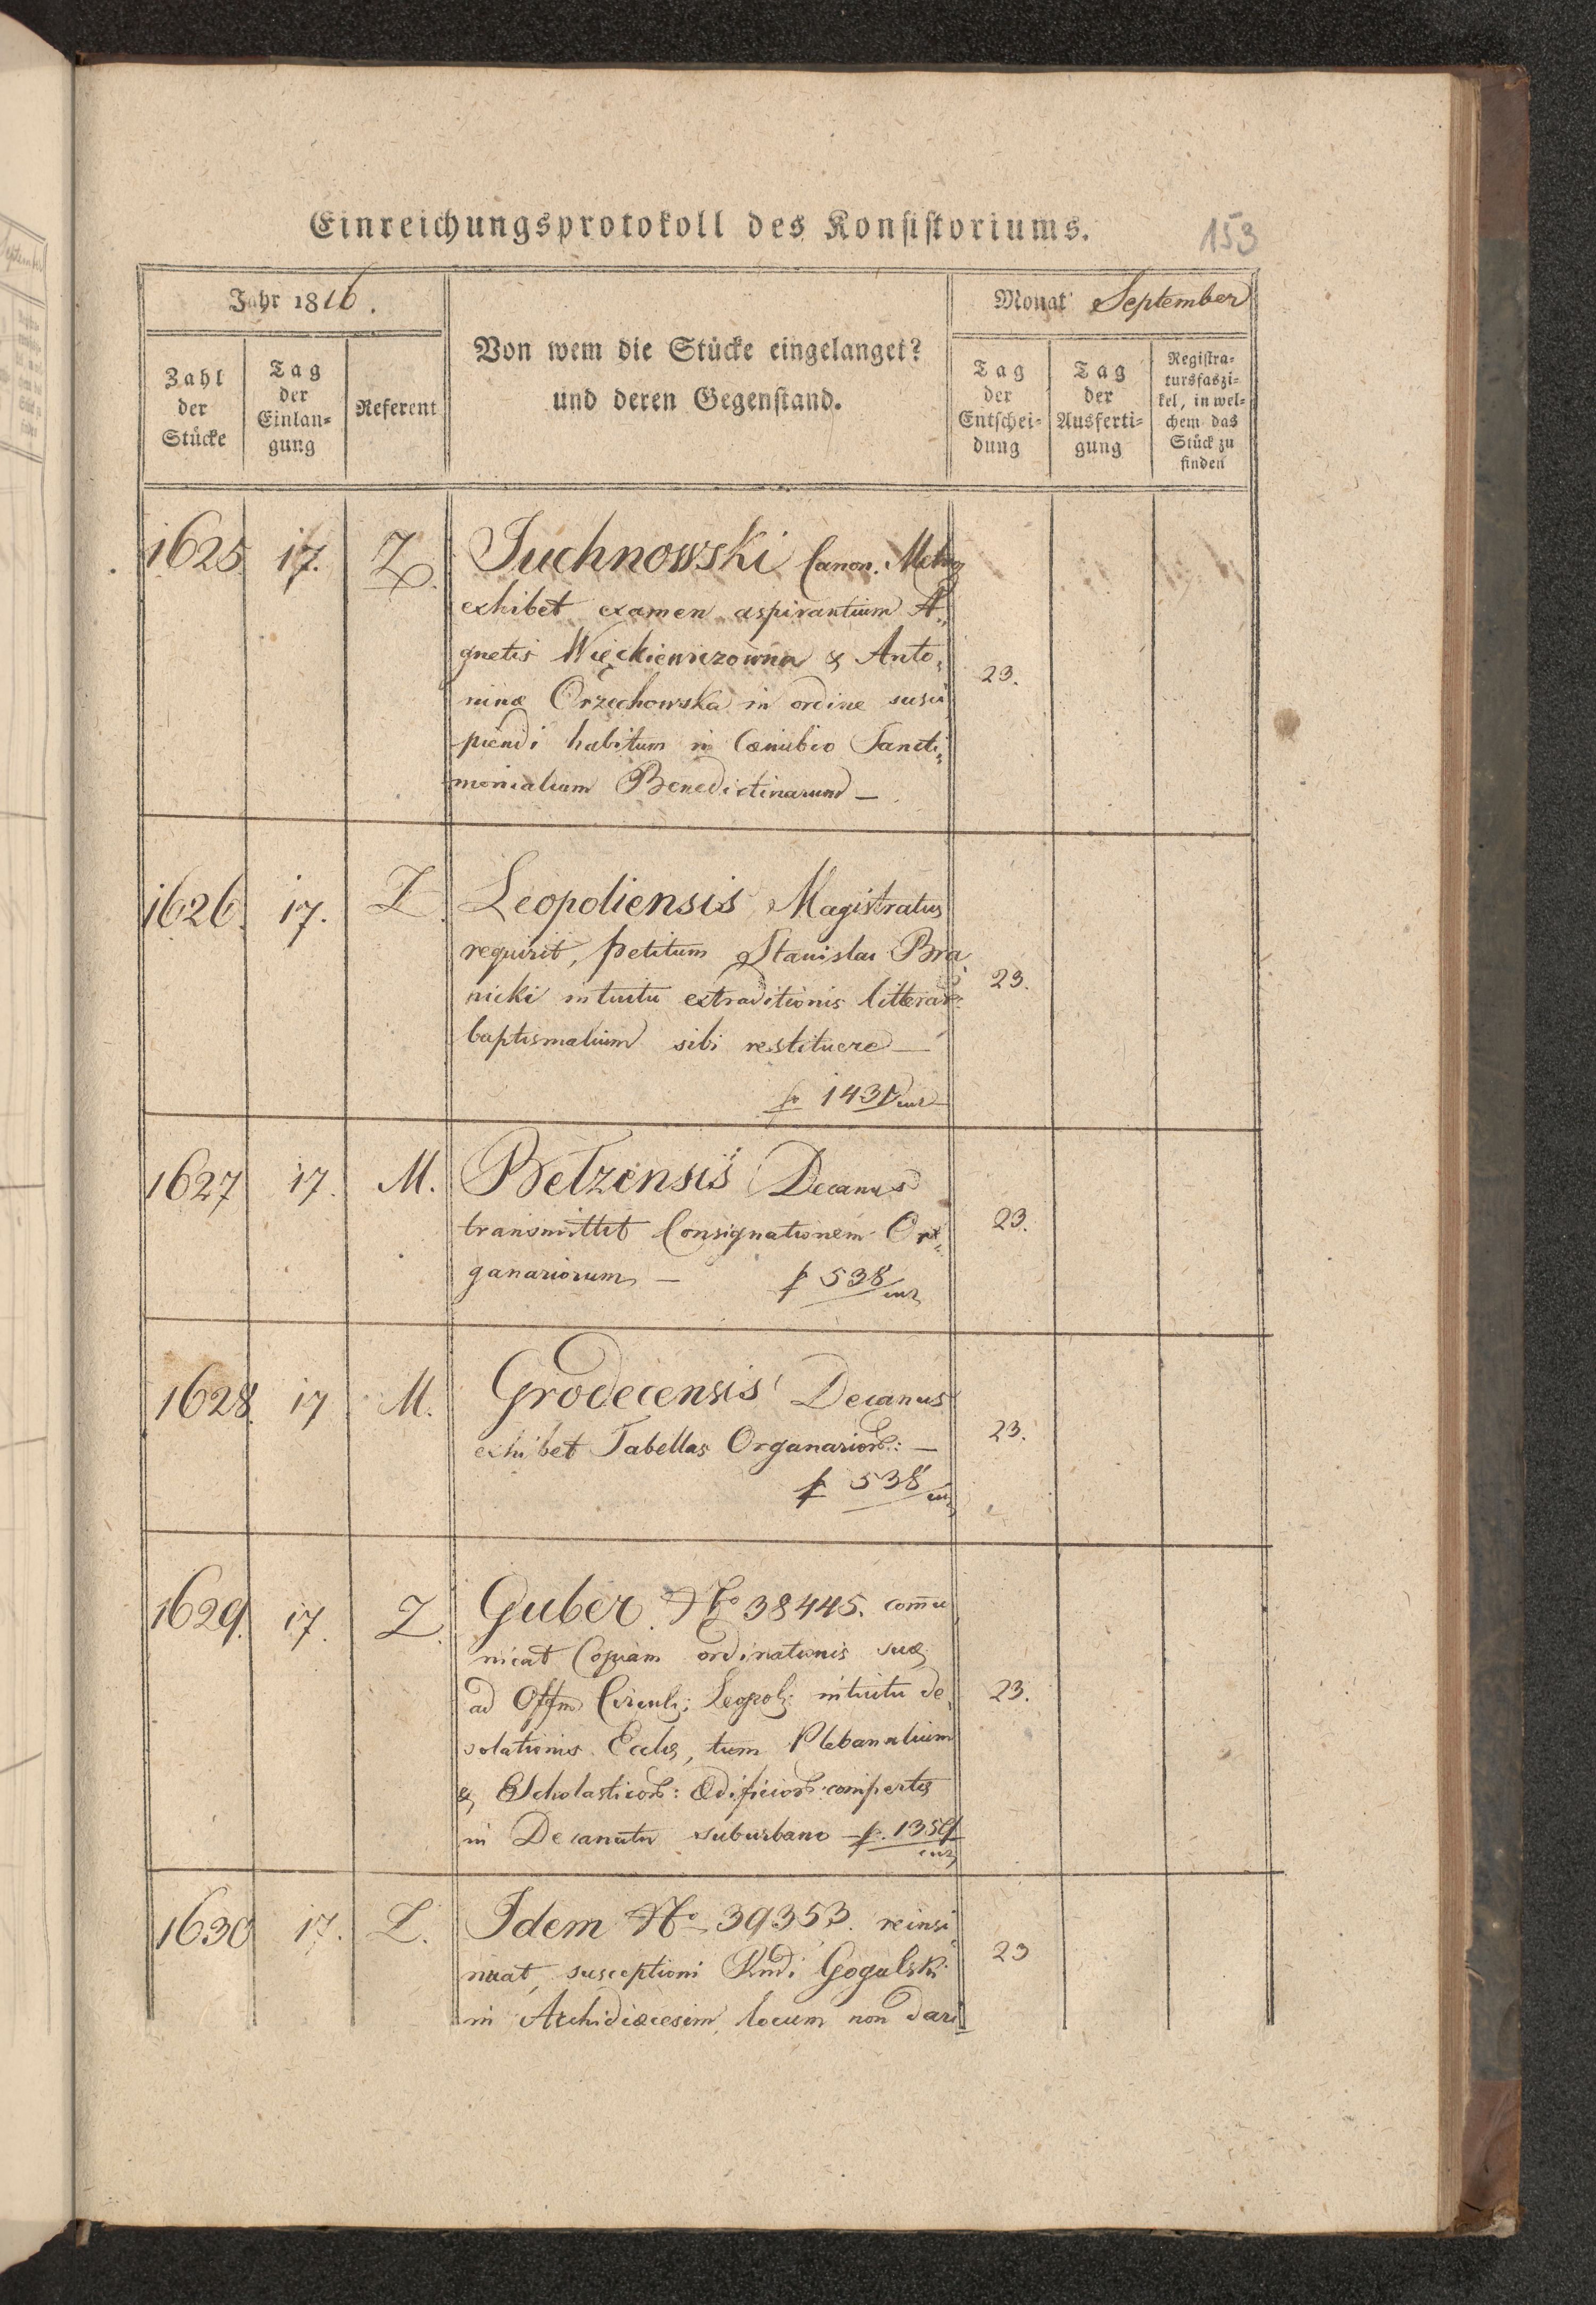 Einreichungsprotokoll des Konsistoriums.
153
Jahr 1816.
Monat September
Zahl der Stücke
Tag der Einlan-gung
Referent
Von wem die Stücke eingelanget?
und deren Gegenstand.
Tag der Entschei-dung
Tag der Ausferti-gung
Registra-tursfaszi-kel, in wel-chem das Stück zu finden
1625. 17. Z. Juchnowski Canon. Metrop
exhibet examen aspirantium A„
gnetis Więckiewiczowna & Anto„
ninæ Orzechowska in ordine susci„
piendi habitum in Cœnubio Sancti„
monialium Benedictinarum — 23.
1626. 17. Z. Leopoliensis Magistratus
requirit, petitum Stanislai Bra„
nicki intuitu extraditionis litterar:
baptismalium sibi restituere — 23.
1437
1627 17. M. Betzensis Decanus
transmittit Consignationem Or„
ganariorum — p 538 23.
1628. 17 M. Grodecensis Decanus
exhibet Tabellas Organarior: — 23.
p 538
1629. 17. Z. Guber. No 38445. com̄u
nicat Copiam ordinationis suæ
ad Offm Circul: Leopol: intuitu de„
solationis Eccliæ, tum Plebanalium
& Scholasticor: Ædificior: compertæ
in Decanatu suburbano — p. 1359 23.
1630 17. L. Idem No 39353. reinsi„
nuat, susceptioni Rndi Gogulski
in Archidiœcesim locum non dari 23